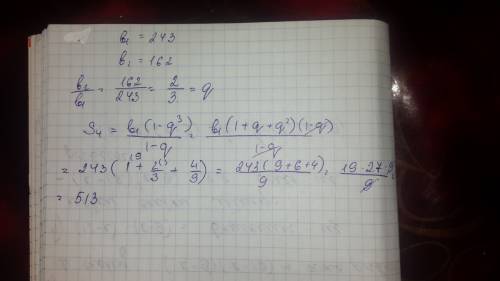 b₁ = 243
b₂ = 162
b₂/b₁ = 162/243 = 2/3 = q
S₄ = b₁(1-q³)/1-q = b₁(1+q+q²)(1-q)/1-q
= 243(1+2/3+4/9) = 243(9+6+4)/9 = 19·27·9/9
= 513